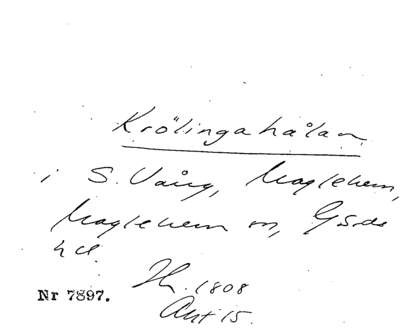 Krölingahålan
i S. Vång, Maglehem,
Maglehem sn, Gärds
hd.
Nr 7897.
1808
Akt 15.